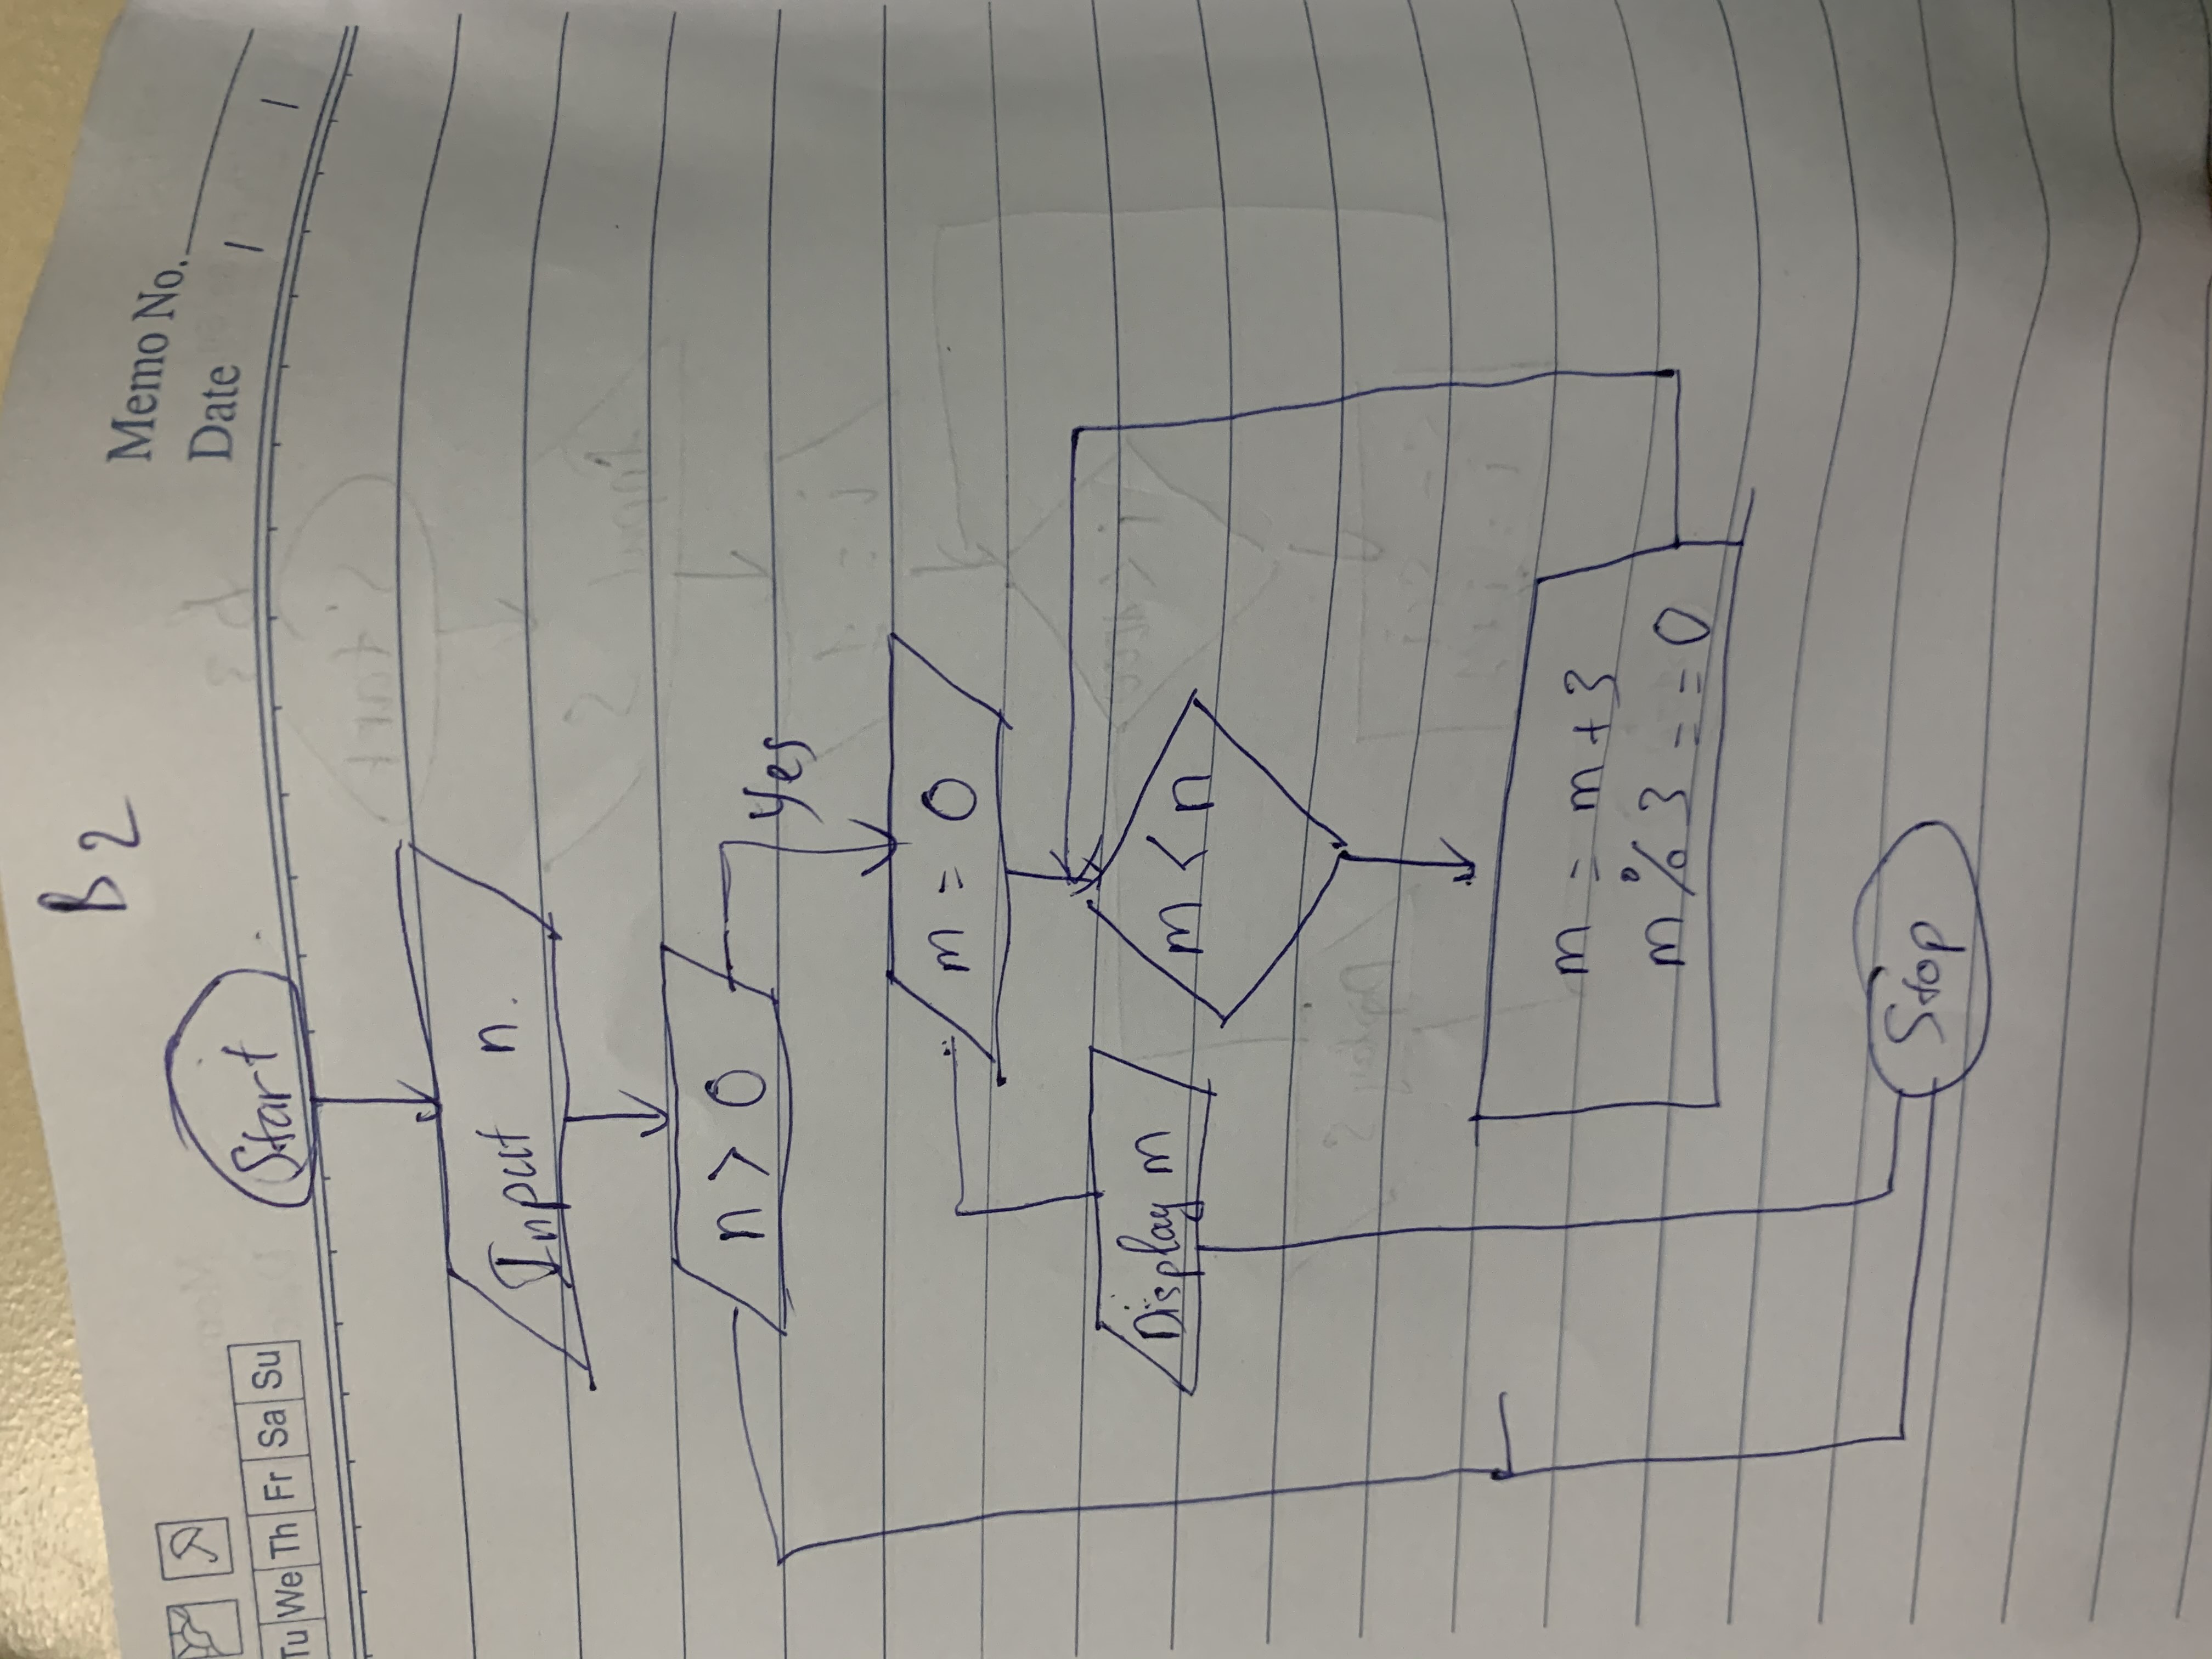 B2
Memo No.
Date / /
Tu We Th Fr Sa Su
Start
Input n.
n > 0
Yes
m = 0
Display m
m < n
m = m + 3
m % 3 = = 0
Stop